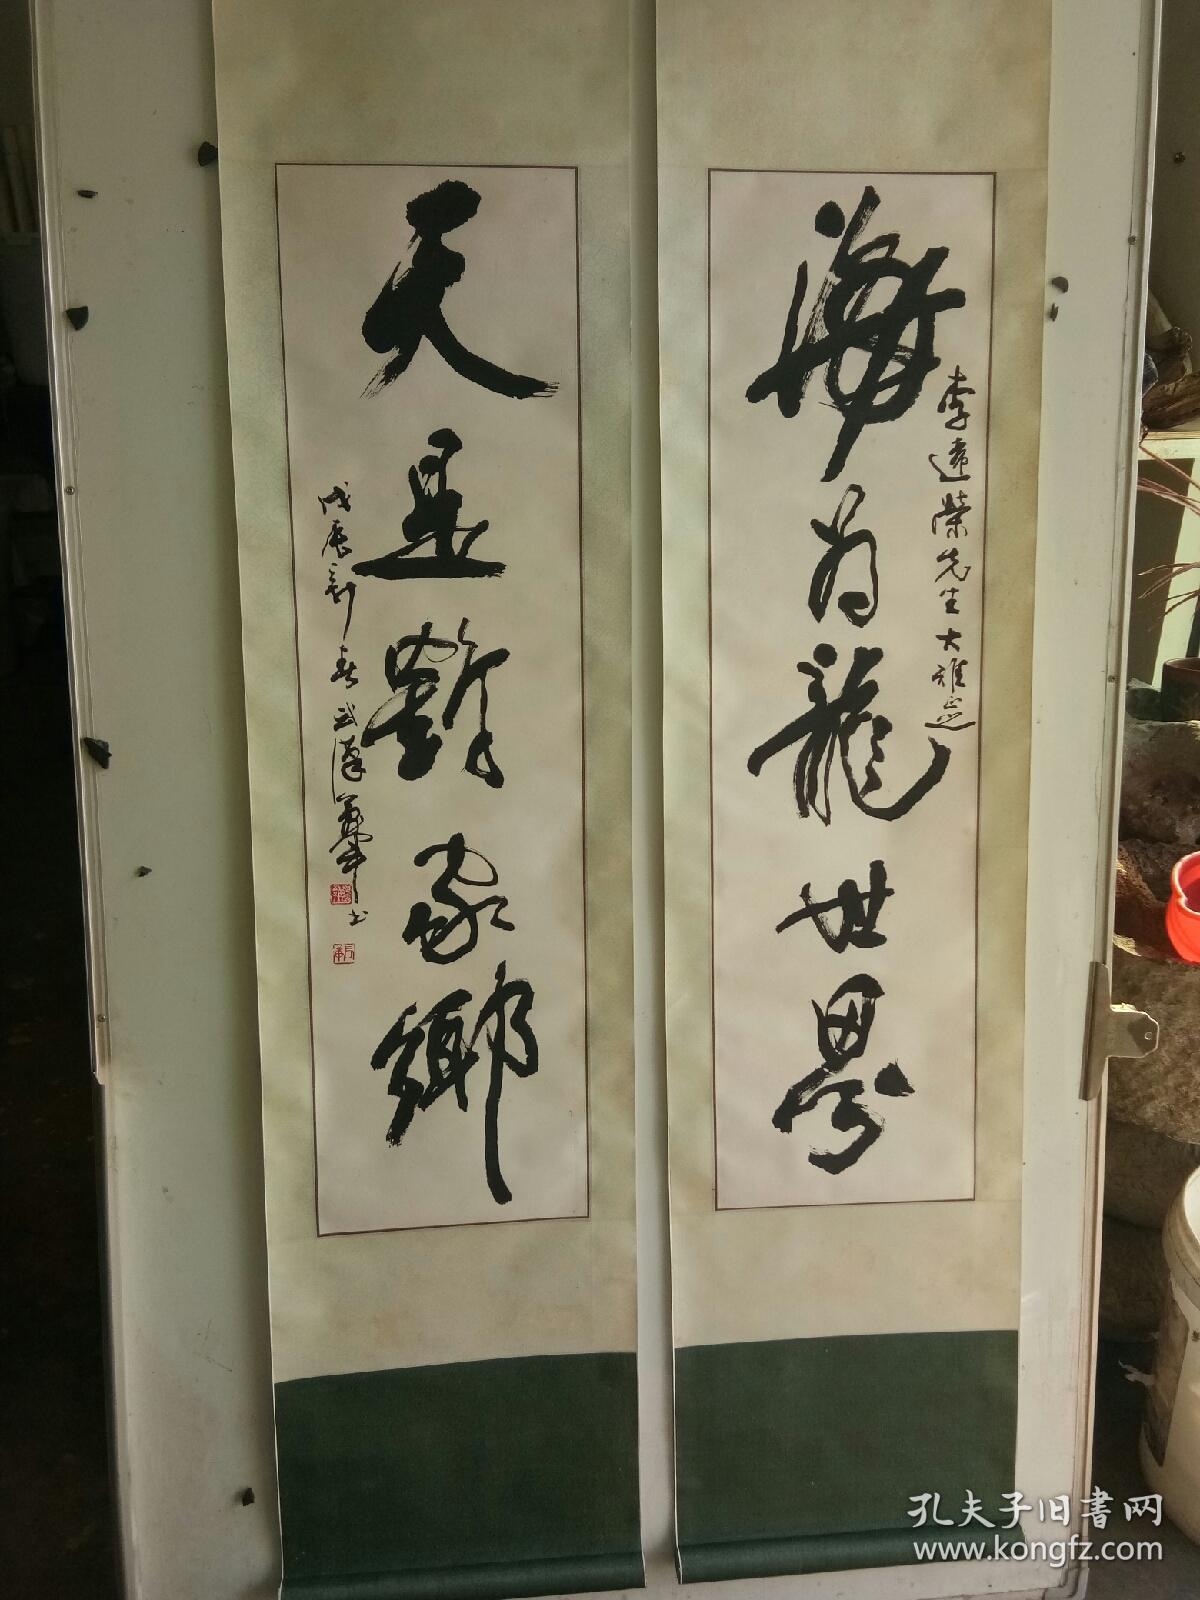 海为龍世界
李遠榮先生大雅正
天是鶴家鄉
戊辰新春武漢
書
孔夫子旧書网
www.kongfz.com